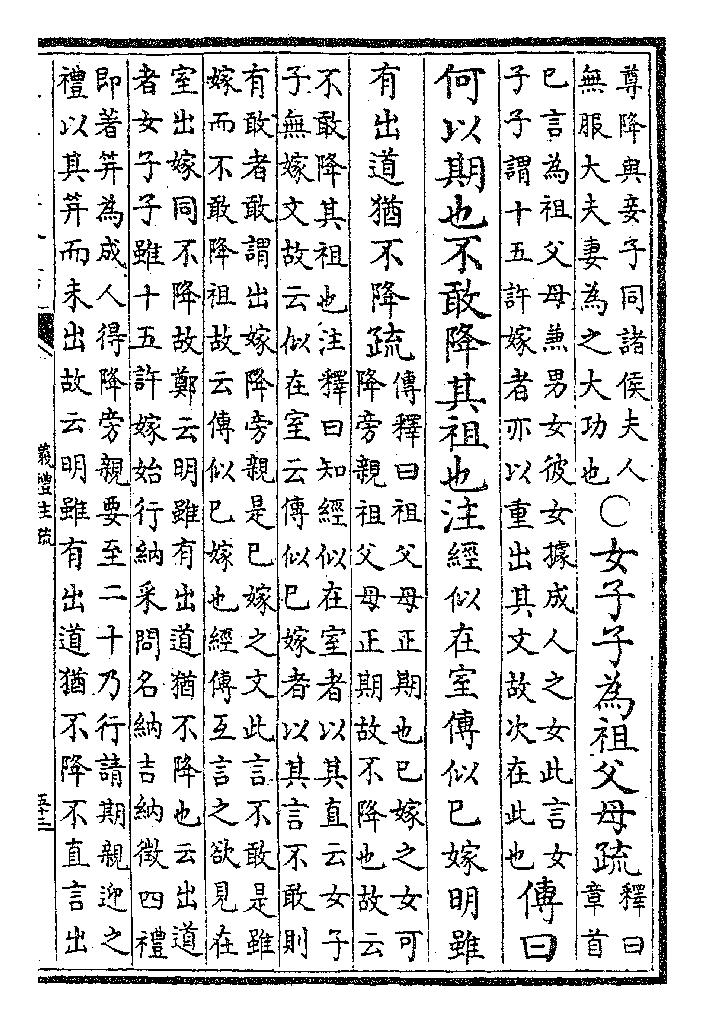 尊降與妾子同諸侯夫人
無服大夫妻為之大功也
○女子子為祖父母疏
釋曰
章首
已言為祖父母兼男女彼女據成人之女此言女
子子謂十五許嫁者亦以重出其文故次在此也
傳曰
何以期也不敢降其祖也注經似在室傳似已嫁明雖
有出道猶不降疏
傳釋曰祖父母正期也已嫁之女可
降旁親祖父母正期故不降也故云
不敢降其祖也注釋曰知經似在室者以其直云女子
子無嫁文故云似在室云傳似已嫁者以其言不敢則
有敢者敢謂出嫁降旁親是已嫁之文此言不敢是雖
嫁而不敢降祖故云傳似已嫁也經傳互言之欲見在
室出嫁同不降故鄭云明雖有出道猶不降也云出道
者女子子雖十五許嫁始行納采問名納吉納徵四禮
即著筓為成人得降旁親要至二十乃行請期親迎之
禮以其筓而未出故云明雖有出道猶不降不直言出
儀禮注疏